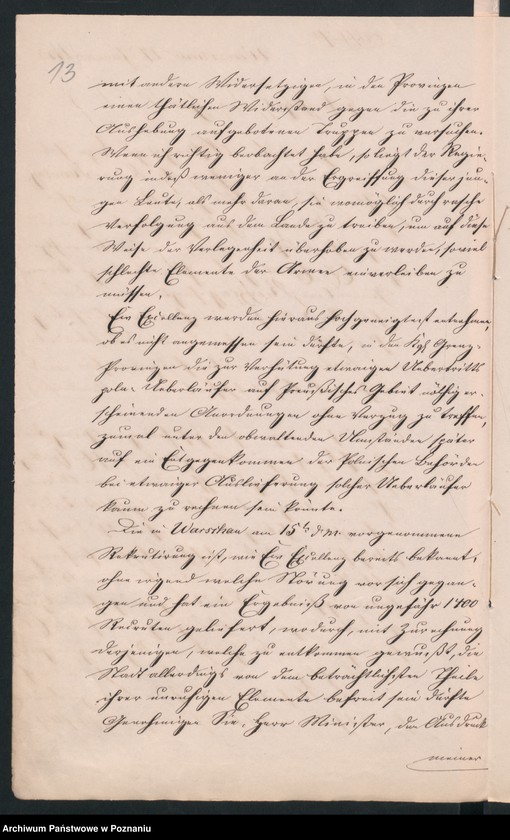 13
mit andern Widersetzigen, in den Provinzen
einen thätlichen Widerstand gegen die zu ihrer
Aushebung aufgebotenen Truppen zu versuchen.
Wenn ich richtig beobachtet habe, so liegt der Regie-
rung indeß weniger an der Ergreiffung dieser jun-
gen Leute, als mehr daran, sie womöglich durch rasche
Verfolgung aus dem Lande zu treiben, um auf diese
Weise der Verlegenheit überhoben zu werden, soviel
schlechte Elemente der Armee einverleiben zu
müssen.
Ew Excellenz werden hieraus hochgeneigtest entnehmen,
ob es nicht angemessen sein dürfte, in den Kgl. Grenz-
Provinzen die zur Verhütung etwaigen Uebertritts
poln. Ueberläufer auf Preußisches Gebiet nöthig er-
scheinenden Anordnungen ohne Verzug zu treffen,
zumal unter den obwaltenden Umständen später
auf ein Entgegenkommen der Polnischen Behörden
bei etwaiger Auslieferung solcher Ueberläufer
kaum zu rechnen sein könnte.
Die in Warschau am 15t d. M. vorgenommene
Rekrutirung ist, wie Ew Excellenz bereits bekannt,
ohne irgend welche Störung vor sich gegan-
gen und hat ein Ergebniß von ungefähr 1400
Recruten geliefert, wodurch, mit Zurechnung
derjenigen, welche zu entkommen gewußt, die
Stadt allerdings von dem beträchtlichsten Theile
ihrer unruhigen Elemente befreit sein dürfte
Genehmigen Sie, Herr Minister, den Ausdruck
meiner
Archiwum Państwowe w Poznaniu